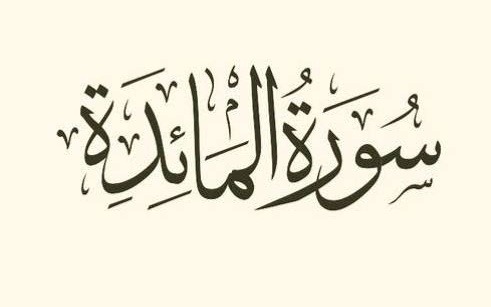 سُورَةُ الْمَائِدَةِ